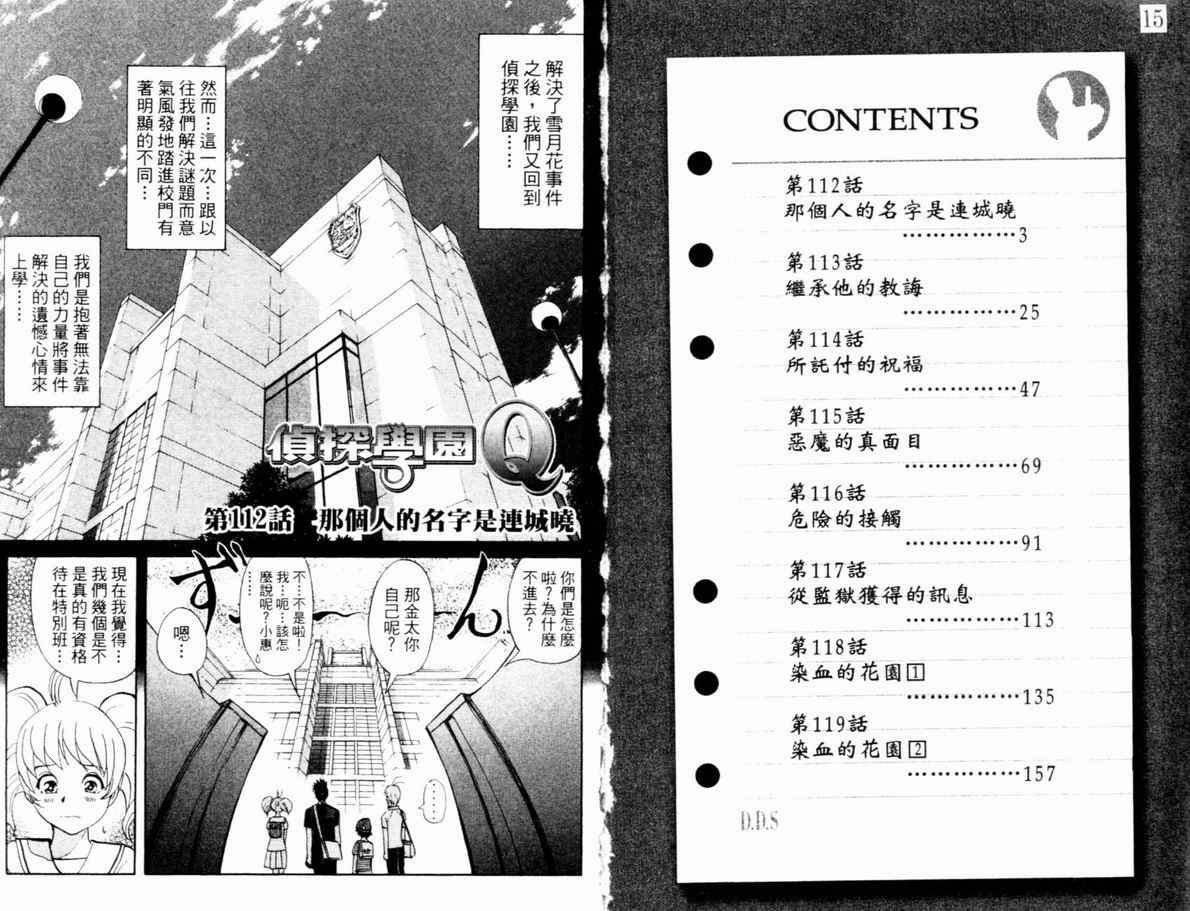 15
CONTENTS
第112話
那個人的名字是連城曉
………………3
第113話
繼承他的教誨
………………25
第114話
所託付的祝福
………………47
第115話
惡魔的真面目
………………69
第116話
危險的接觸
………………91
第117話
從監獄獲得的訊息
………………113
第118話
染血的花園1
………………135
第119話
染血的花園2
………………157
D.D.S
解決了雪月花事件
之後，我們又回到
偵探學園……
然而…這一次…跟以
往我們解決謎題而意
氣風發地踏進校門有
著明顯的不同…
我們是抱著無法靠
自己的力量將事件
解決的遺憾心情來
上學……
偵探學園Q
第112話 那個人的名字是連城曉
你們是怎麼
啦？為什麼
不進去？
ずん
那金太你
自己呢？
不…不是啦！
我…呃…該怎
麼說呢？小惠
……
嗯…
……
現在我覺得…
我們幾個是不
是真的有資格
待在特別班…